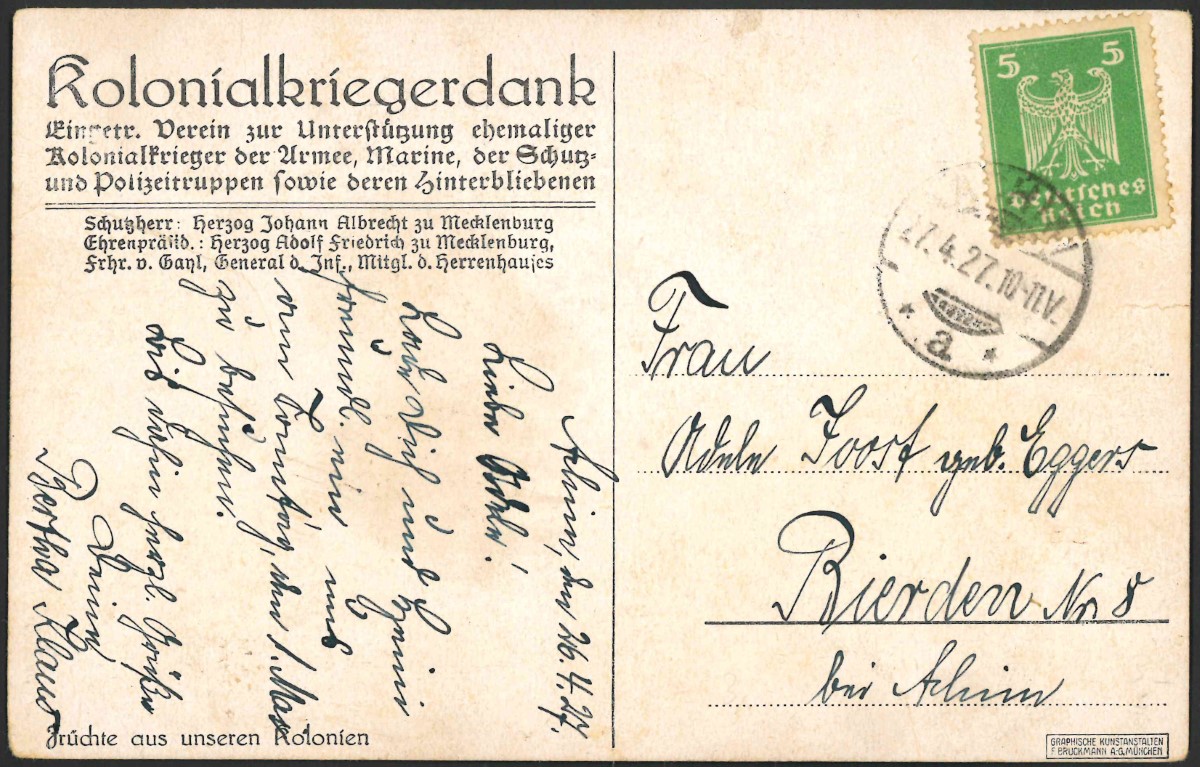 Kolonialkriegerdank
Eingetr. Verein zur Unterstützung ehemaliger
Kolonialkrieger der Armee, Marine, der Schutz-
und Polizeitruppen sowie deren Hinterbliebenen
Schutzherr: Herzog Johann Albrecht zu Mecklenburg
Ehrenpräsid.: Herzog Adolf Friedrich zu Mecklenburg,
Frhr. v. Gayl, General d. Inf., Mitgl. d. Herrenhauses
Achim, den 26.4.27.
Liebe Adele!
Lade Dich und Heini
freundl. ein uns
am Sonntag, den 1. Mai
zu besuchen.
Bis dahin herzl. Grüße
Deine
Bertha Klaus
Früchte aus unseren Kolonien
5 5
Deutsches
Reich
27.4.27.10-11V.
* a *
Frau
Adele Joost geb. Eggers
Bierden Nr. 8
bei Achim
GRAPHISCHE KUNSTANSTALTEN
F. BRUCKMANN A-G. MÜNCHEN